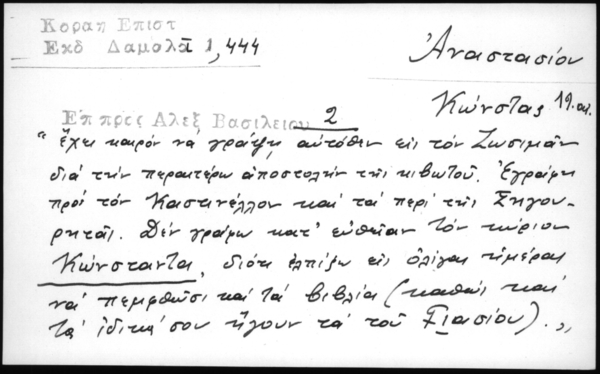 Κοραη Επιστ
Εκδ Δαμαλᾶ 1,444
Ἀναστασίου
Κώνστας 19. αἰ.
Επ προς Αλεξ Βασιλειου 2
"ἔχει καιρόν να γράψῃ αὐτόθεν εἰς τόν Ζωσιμᾶν
διά τήν περαιτέρω ἀποστολήν τῆς κιβωτοῦ. Ἔγραψα
πρός τόν Καστινέλλον καί τά περί τῆς
Δέν γράφω κατ' εὐθεῖαν τόν κύριον
Κώνσταντα, διότι ἐλπίζω εἰς ὀλίγας ἡμέρας
νά πεμφθῶσι καί τά βιβλία (καθώς καί
τά ἰδικά σου ἤγουν τά τοῦ ).„